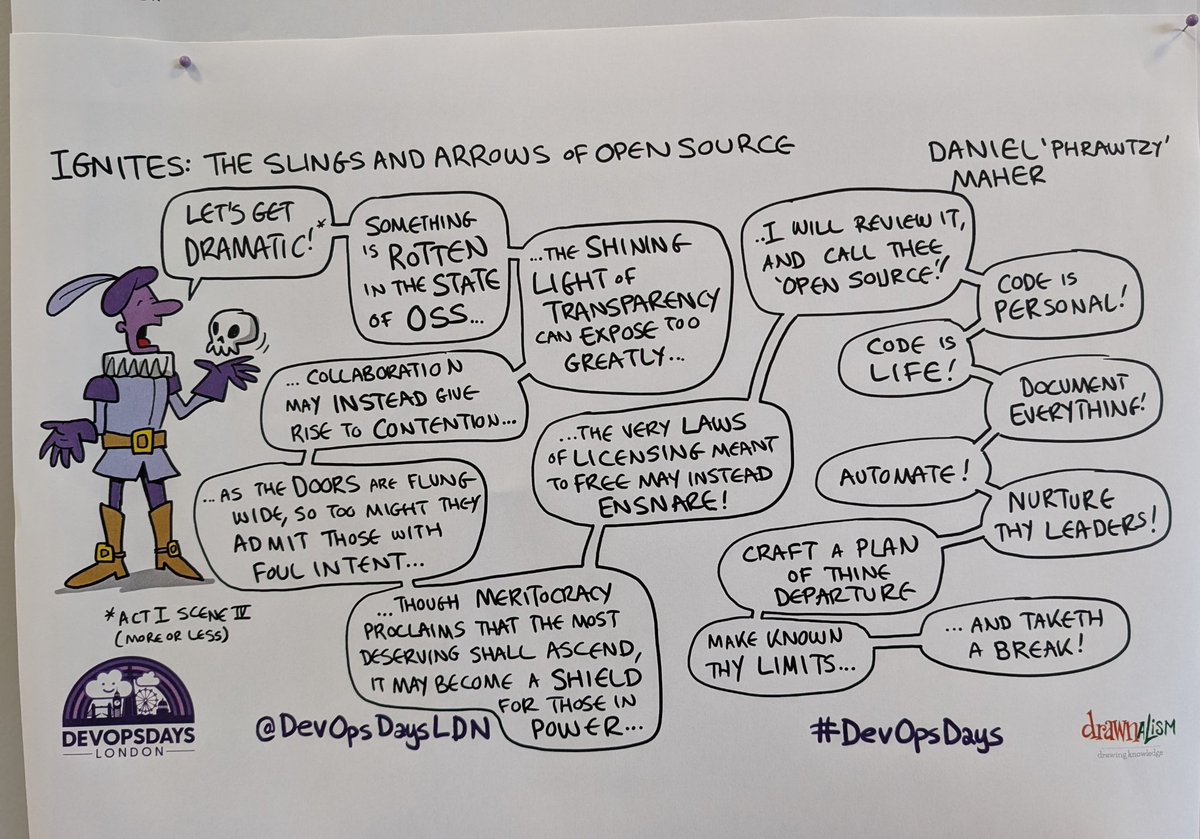 IGNITES: THE SLINGS AND ARROWS OF OPEN SOURCE
DANIEL 'PHRAWTZY'
MAHER
LET'S GET
DRAMATIC!*
SOMETHING
IS ROTTEN
IN THE STATE
OF OSS...
...THE SHINING
LIGHT OF
TRANSPARENCY
CAN EXPOSE TOO
GREATLY...
...COLLABORATION
MAY INSTEAD GIVE
RISE TO CONTENTION...
...AS THE DOORS ARE FLUNG
WIDE, SO TOO MIGHT THEY
ADMIT THOSE WITH
FOUL INTENT...
...THOUGH MERITOCRACY
PROCLAIMS THAT THE MOST
DESERVING SHALL ASCEND,
IT MAY BECOME A SHIELD
FOR THOSE IN
POWER...
...THE VERY LAWS
OF LICENSING MEANT
TO FREE MAY INSTEAD
ENSNARE!
..I WILL REVIEW IT,
AND CALL THEE
'OPEN SOURCE'!
CODE IS
PERSONAL!
CODE IS
LIFE!
DOCUMENT
EVERYTHING!
AUTOMATE!
NURTURE
THY LEADERS!
CRAFT A PLAN
OF THINE
DEPARTURE
MAKE KNOWN
THY LIMITS...
...AND TAKETH
A BREAK!
*ACT I SCENE IV
(MORE OR LESS)
DEVOPSDAYS
LONDON
@DevOpsDaysLDN
#DevOpsDays
drawnALISM
drawing knowledge